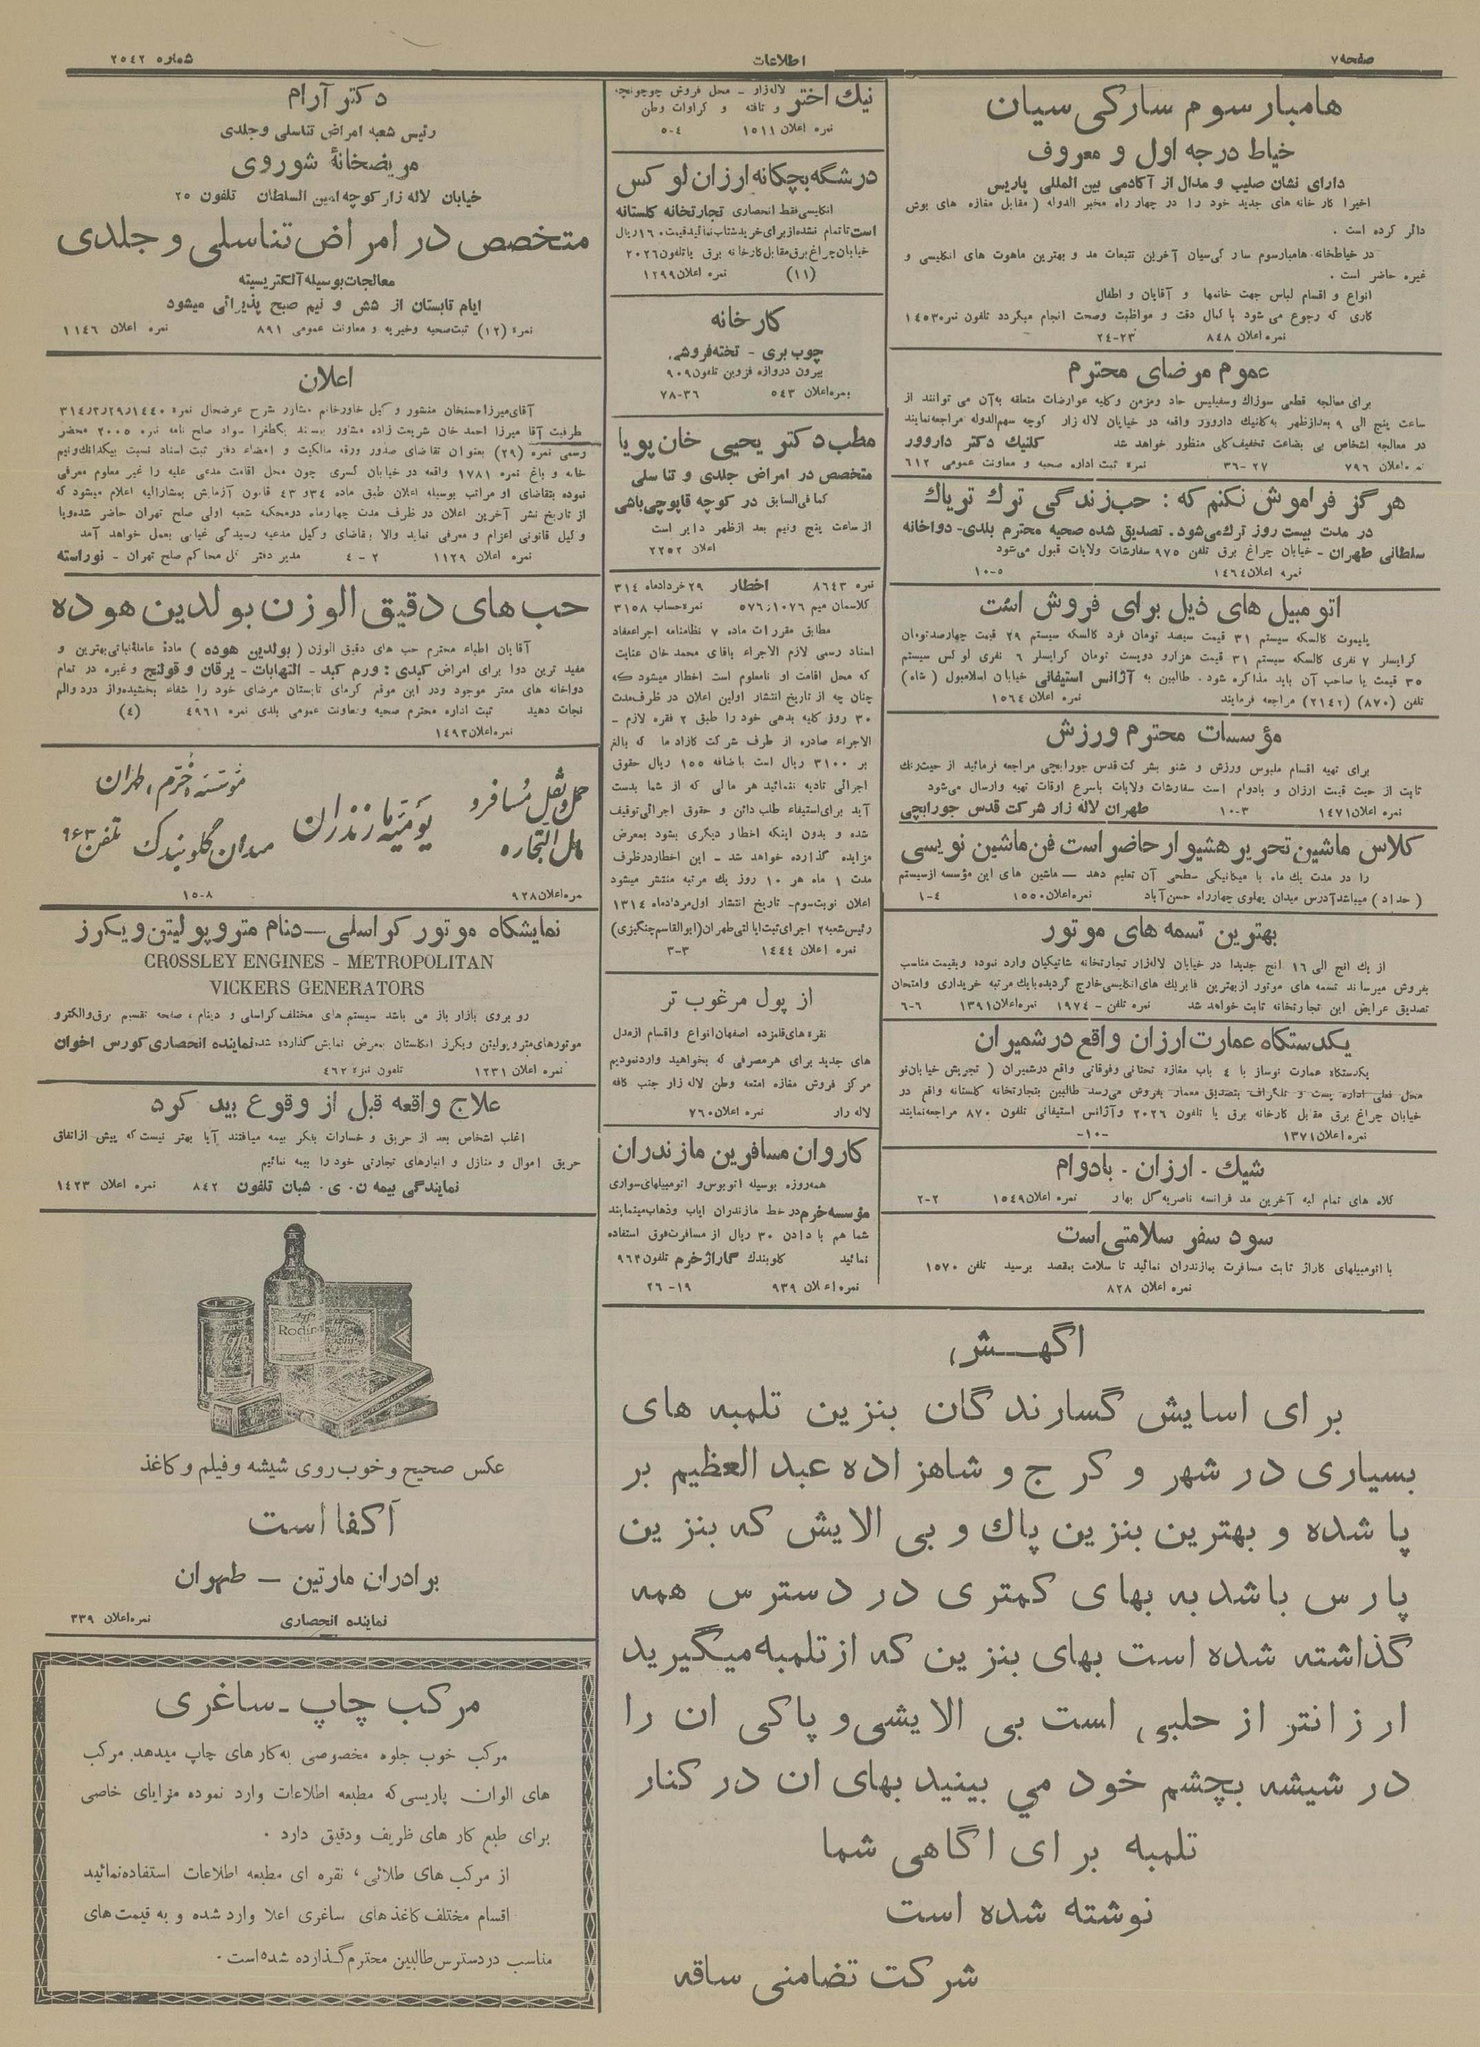 صفحه ۷
اطلاعات
شماره ۲۵۴۲
هامبارسوم سارکی سیان
خیاط درجه اول و معروف
دارای نشان صلیب و مدال از آکادمی بین المللی پاریس
اخیرا کارخانه های جدید خود را در چهار راه مخبر الدوله ( مقابل مغازه های بوش
دائر کرده است .
در خیاطخانه هامبارسوم سارکی سیان آخرین تتبعات مد و بهترین ماهوت های انگلیسی و
غیره حاضر است .
انواع و اقسام لباس جهت خانمها و آقایان و اطفال
کاری که رجوع می شود با کمال دقت و مواظبت وصحت انجام میگردد تلفون نمره ۱۴۵۳
نمره اعلان ۸۴۸ ۲۳-۲۴
عموم مرضای محترم
برای معالجه قطعی سوزاك وسفیلیس حاد ومزمن وکلیه عوارضات متعلقه به آن می توانند از
ساعت پنج الی ۹ بعدازظهر به کلنیك داروور واقعه در خیابان لاله زار کوچه سهم الدوله مراجعه نمایند
در معالجه اشخاص بی بضاعت تخفیف کلی منظور خواهد شد کلنیك دکتر داروور
نمره اعلان ۷۹۶ ۲۷-۳۶ نمره ثبت اداره صحیه و معاونت عمومی ۶۱۲
هرگز فراموش نکنم که : حب زندگی ترك تریاك
در مدت بیست روز ترك می شود. تصدیق شده صحیه محترم بلدی- دواخانه
سلطانی طهران - خیابان چراغ برق تلفن ۹۷۵ سفارشات ولایات قبول می شود
نمره اعلان ۱۴۶۴ ۵-۱۰
اتومبیل های ذیل برای فروش است
پلیموت کالسکه سیستم ۳۱ قیمت سیصد تومان فرد کالسکه سیستم ۲۹ قیمت چهارصد تومان
کرایسلر ۷ نفری کالسکه سیستم ۳۱ قیمت هزار و دویست تومان کرایسلر ۶ نفری لوکس سیستم
۳۵ قیمت با صاحب آن باید مذاکره شود. طالبین به آژانس استیفانی خیابان اسلامبول ( شاه )
تلفن (۸۷۰) (۲۱۴۲) مراجعه فرمایند نمره اعلان ۱۵۶۴
مؤسسات محترم ورزش
برای تهیه اقسام ملبوس ورزش و شنو بشرکت قدس جورابچی مراجعه فرمائید از حیث رنك
ثابت از حیث قیمت ارزان و بادوام است سفارشات ولایات باسرع اوقات تهیه وارسال می شود
نمره اعلان ۱۴۷۱ ۳-۱۰ طهران لاله زار شرکت قدس جورابچی
کلاس ماشین تحریر هشیوار حاضر است فن ماشین نویسی
را در مدت یك ماه با میکانیکی سطحی آن تعلیم دهد — ماشین های این مؤسسه از سیستم
( حداد ) میباشد آدرس میدان پهلوی چهارراه حسن آباد نمره اعلان ۱۵۵۰ ۴-۱
بهترین تسمه های موتور
از یك انج الی ۱۶ انج جدیدا در خیابان لاله زار تجارتخانه شانیکیان وارد نموده وبقیمت مناسب
بفروش میرساند تسمه های موتور از بهترین فابریك های انگلیسی خارج گردیده بایك مرتبه خریداری وامتحان
تصدیق عرایض این تجارتخانه ثابت خواهد شد نمره تلفن - ۱۹۷۴ نمره اعلان ۱۳۹۱ ۶-۶
یکدستگاه عمارت ارزان واقع در شمیران
یکدستگاه عمارت نوساز با ۴ باب مغازه تحتانی وفوقانی واقع در شمیران ( تجریش خیابان نو
محل فعلی اداره پست و تلگراف بتصدیق معمار بفروش می رسد طالبین بتجارتخانه گلستانه واقع در
خیابان چراغ برق مقابل کارخانه برق یا تلفون ۲۰۲۶ وآژانس استیفانی تلفون ۸۷۰ مراجعه نمایند
نمره اعلان ۱۳۷۱ -۱۰-
شیك - ارزان - بادوام
کلاه های تمام لبه آخرین مد فرانسه ناصریه گل بهار نمره اعلان ۱۵۴۹ ۲-۲
سود سفر سلامتی است
با اتومبیلهای گاراژ ثابت مسافرت بمازندران نمائید تا سلامت بمقصد برسید تلفن ۱۵۷۰
نمره اعلان ۸۲۸
نیك اختر
لاله زار - محل فروش چوچونچه
و تافته و کراوات وطن
نمره اعلان ۱۵۱۱ ۴-۵
درشگه بچگانه ارزان لوکس
انگلیسی فقط انحصاری تجارتخانه گلستانه
است تا تمام نشده از برای خرید شتاب نمائید قیمت ۱۶۰ ریال
خیابان چراغ برق مقابل کارخانه برق یا تلفون ۲۰۲۶
(۱۱) نمره اعلان ۱۲۹۹
کارخانه
چوب بری - تخته فروشی
بیرون دروازه قزوین تلفون ۹۰۹
نمره اعلان ۵۴۳ ۳۶-۷۸
مطب دکتر یحیی خان پویا
متخصص در امراض جلدی و تناسلی
کما فی السابق در کوچه قاپوچی باشی
از ساعت پنج ونیم بعد از ظهر دایر است
اعلان ۲۲۵۲
نمره ۸۶۴۳ اخطار ۲۹ خردادماه ۳۱۴
کلاسمان میم ۵۷۶/۱۰۷۶ نمره حساب ۳۱۵۸
مطابق مقررات ماده ۷ نظامنامه اجرا عمفاد
اسناد رسمی لازم الاجراء باقای محمد خان عنایت
که محل اقامت او نامعلوم است اخطار میشود که
چنان چه از تاریخ انتشار اولین اعلان در ظرف مدت
۳۰ روز کلیه بدهی خود را طبق ۲ فقره لازم -
الاجراء صادره از طرف شرکت کازادما که بالغ
بر ۳۱۰۰ ریال است باضافه ۱۵۵ ریال حقوق
اجرائی تادیه ننمائید هر مالی که از شما بدست
آید برای استیفاء طلب دائن و حقوق اجرائی توقیف
شده و بدون اینکه اخطار دیگری بشود بمعرض
مزایده گذارده خواهد شد - این اخطار در ظرف
مدت ۱ ماه هر ۱۰ روز یك مرتبه منتشر میشود
اعلان نوبت سوم - تاریخ انتشار اول مردادماه ۱۳۱۴
رئیس شعبه ۲ اجرای ثبت ایالتی طهران (ابوالقاسم چنگیزی)
نمره اعلان ۱۴۴۴ ۳-۳
از پول مرغوب تر
نقره های قلمزده اصفهان انواع واقسام از مدل
های جدید برای هر مصرفی که بخواهید وارد نمودیم
مرکز فروش مغازه امتعه وطن لاله زار جنب کافه
لاله زار نمره اعلان ۷۶۰
کاروان مسافرین مازندران
همه روزه بوسیله اتوبوس و اتومبیلهای سواری
مؤسسه خرم در خط مازندران ایاب وذهاب مینمایند
شما هم با دادن ۳۰ ریال از مسافرت فوق استفاده
نمائید گلوبندك گاراژ خرم تلفون ۹۶۳
نمره اعلان ۹۳۹ ۱۹-۲۶
اگهش
برای اسایش گسارندگان بنزین تلمبه های
بسیاری در شهر و کرج و شاهزاده عبدالعظیم بر
پا شده و بهترین بنزین پاك و بی الایش که بنزین
پارس باشد به بهای کمتری در دسترس همه
گذاشته شده است بهای بنزین که از تلمبه میگیرید
ارزانتر از حلبی است بی الایشی و پاکی ان را
در شیشه بچشم خود می بینید بهای ان در کنار
تلمبه برای اگاهی شما
نوشته شده است
شرکت تضامنی ساقه
دکتر آرام
رئیس شعبه امراض تناسلی وجلدی
مریضخانهٔ شوروی
خیابان لاله زار کوچه امین السلطان تلفون ۲۵
متخصص در امراض تناسلی و جلدی
معالجات بوسیله آلکتریسیته
ایام تابستان از شش و نیم صبح پذیرائی میشود
نمره (۱۲) ثبت صحیه وخیریه و معاونت عمومی ۸۹۱ نمره اعلان ۱۱۴۶
اعلان
آقای میرزا حسنخان منشور وکیل خاور خانم مشاور شرح عرضحال نمره ۳۱۴/۲/۲۹/۱۴۴۰
طرفیت آقا میرزا احمد خان شریعت زاده مشاور بسند یکطغرا سواد صلح نامه نمره ۲۰۰۵ محضر
رسمی نمره (۲۹) بعنوان تقاضای صدور ورقه مالکیت و امضاء دفتر ثبت اسناد نسبت بیکدانك ونیم
خانه و باغ نمره ۱۷۸۱ واقعه در خیابان کسری چون محل اقامت مدعی علیه را غیر معلوم معرفی
نموده بتقاضای او مراتب بوسیله اعلان طبق ماده ۳۴و ۴۳ قانون آزمایش بمشارالیه اعلام میشود که
از تاریخ نشر آخرین اعلان در ظرف مدت چهارماه در محکمه شعبه اولی صلح تهران حاضر شده ویا
وکیل قانونی اعزام و معرفی نماید والا بتقاضای وکیل مدعیه رسیدگی غیابی بعمل خواهد آمد
نمره اعلان ۱۱۲۹ ۲-۴ مدیر دفتر کل محاکم صلح تهران - نوراسته
حب های دقیق الوزن بولدین هوده
آقایان اطباء محترم حب های دقیق الوزن ( بولدین هوده ) مادهٔ عاملهٔ نباتی بهترین و
مفید ترین دوا برای امراض کبدی : ورم کبد - التهابات - یرقان و قولنج و غیره در تمام
دواخانه های معتبر موجود ودر این موقع گرمای تابستان مرضای خود را شفاء بخشیده و از درد والم
نجات دهید ثبت اداره محترم صحیه ومعاونت عمومی بلدی نمره ۴۹۶۱ (۴)
نمره اعلان ۱۴۹۳
حمل و نقل مسافر و
مال التجاره
یومیه مازندران
مؤسسه خرم، طهران
میدان گلوبندك تلفن ۹۶۳
نمره اعلان ۹۲۸ ۸-۱۵
نمایشگاه موتور کراسلی - دنام متروپولیتن ویکرز
CROSSLEY ENGINES - METROPOLITAN
VICKERS GENERATORS
رو بروی بازار باز می باشد سیستم های مختلف کراسلی و دینام، صفحه تقسیم برق والکترو
موتورهای متروپولیتن ویکرز انگلستان بمعرض نمایش گذارده شده نماینده انحصاری کورس اخوان
نمره اعلان ۱۲۳۱ تلفون نمره ۴۶۲
علاج واقعه قبل از وقوع باید کرد
اغلب اشخاص بعد از حریق و خسارات بفکر بیمه میافتند آیا بهتر نیست که پیش از اتفاق
حریق اموال و منازل و انبارهای تجارتی خود را بیمه نمائیم
نمایندگی بیمه ن. ی. شبان تلفون ۸۴۲ نمره اعلان ۱۴۲۳
Agfa
Rodinal
عکس صحیح و خوب روی شیشه و فیلم و کاغذ
آکفا است
برادران مارتین — طهران
نماینده انحصاری نمره اعلان ۳۳۹
مرکب چاپ - ساغری
مرکب خوب جلوه مخصوصی به کارهای چاپ میدهد. مرکب
های الوان پاریسی که مطبعه اطلاعات وارد نموده مزایای خاصی
برای طبع کار های ظریف ودقیق دارد .
از مرکب های طلائی، نقره ای مطبعه اطلاعات استفاده نمائید
اقسام مختلف کاغذهای ساغری اعلا وارد شده و به قیمت های
مناسب در دسترس طالبین محترم گذارده شده است .